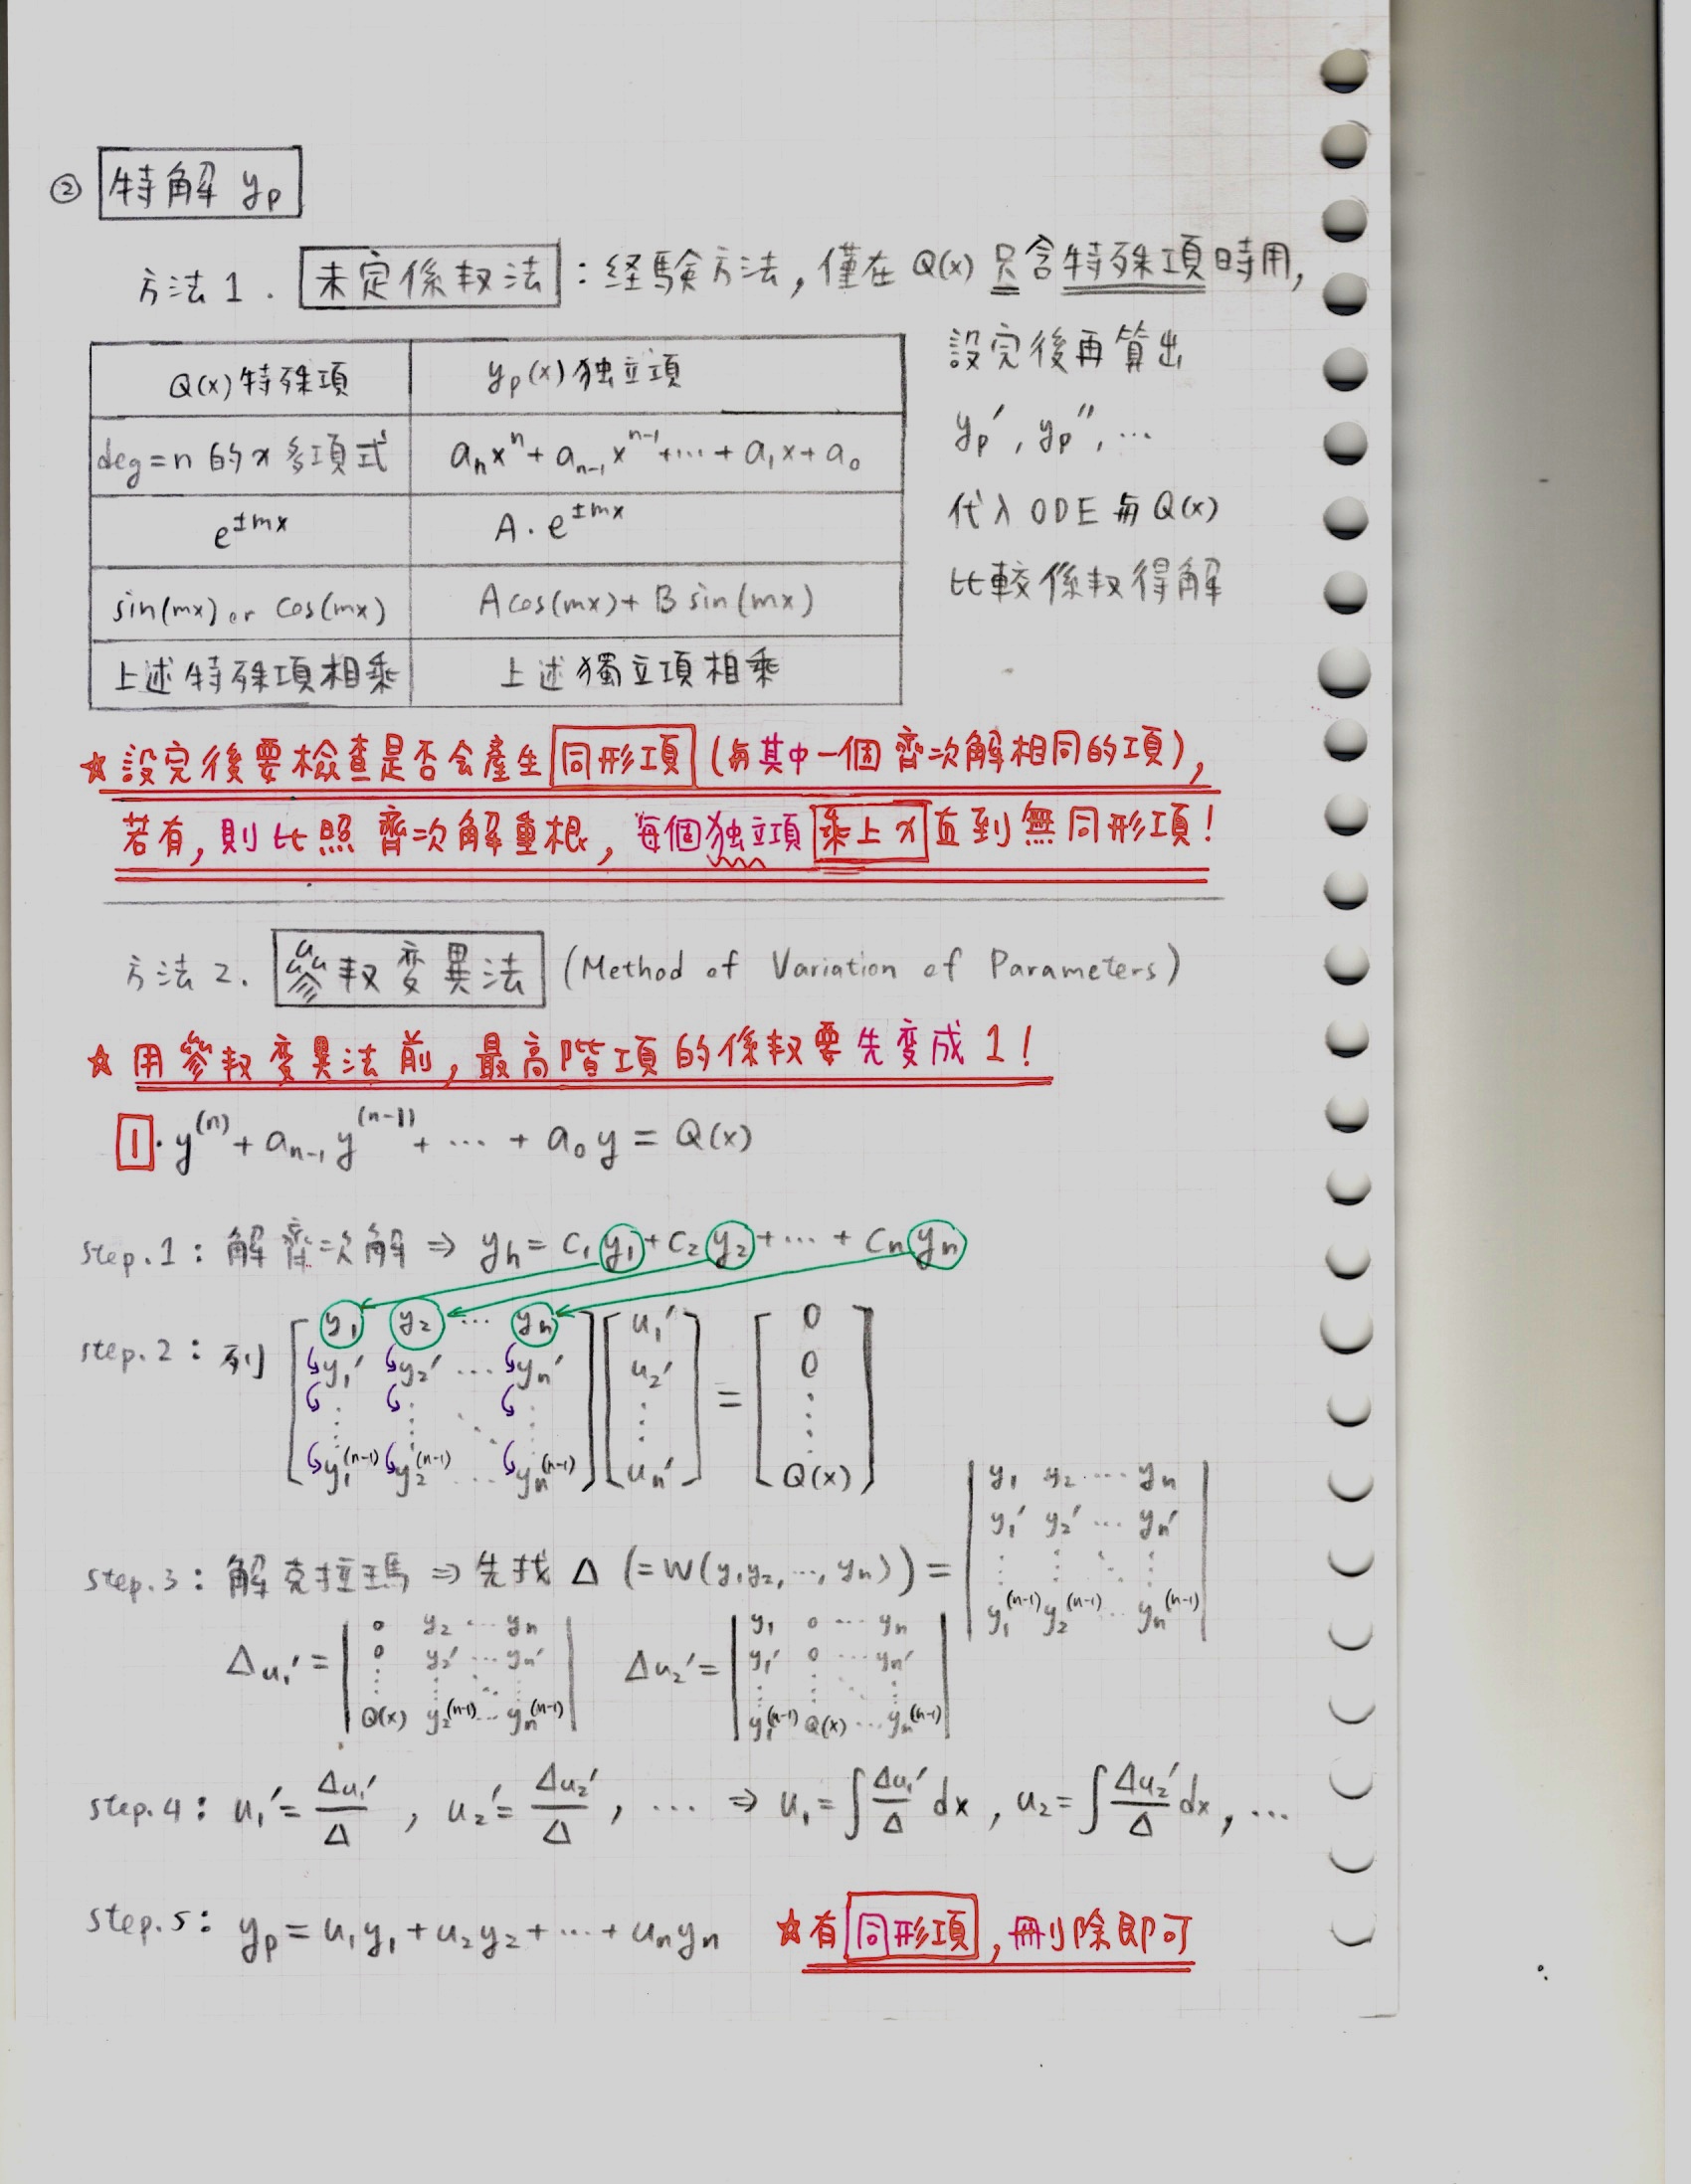 ② 特解 yₚ
方法1. 未定係数法:経験方法,僅在 Q(x) 只含特殊項時用,
設完後再算出
yₚ′, yₚ″, …
代入 ODE 与 Q(x)
比較係数得解
Q(x)特殊項 yₚ(x)独立項
deg=n 的 x 多項式 aₙxⁿ + aₙ₋₁xⁿ⁻¹ + … + a₁x + a₀
e^{±mx} A·e^{±mx}
sin(mx) or cos(mx) Acos(mx)+Bsin(mx)
上述特殊項相乘 上述獨立項相乘
☆設完後要檢查是否会產生同形項(与其中一個齊次解相同的項),
若有,則比照齊次解重根,每個独立項乘上x直到無同形項!
方法2. 參数变異法 (Method of Variation of Parameters)
☆用參数变異法前,最高階項的係数要先变成1!
1·y⁽ⁿ⁾ + aₙ₋₁y⁽ⁿ⁻¹⁾ + … + a₀y = Q(x)
step.1: 解齊次解 ⇒ yₕ = C₁y₁ + C₂y₂ + … + Cₙyₙ
step.2: 列
y₁ y₂ … yₙ
y₁′ y₂′ … yₙ′
⋮ ⋮ ⋱ ⋮
y₁⁽ⁿ⁻¹⁾ y₂⁽ⁿ⁻¹⁾ … yₙ⁽ⁿ⁻¹⁾
u₁′
u₂′
⋮
uₙ′
=
0
0
⋮
Q(x)
step.3: 解克拉瑪 ⇒ 先找 Δ (=W(y₁y₂,…,yₙ)) =
y₁ y₂ … yₙ
y₁′ y₂′ … yₙ′
⋮ ⋮ ⋱ ⋮
y₁⁽ⁿ⁻¹⁾ y₂⁽ⁿ⁻¹⁾ … yₙ⁽ⁿ⁻¹⁾
Δu₁′ =
0 y₂ … yₙ
0 y₂′ … yₙ′
⋮ ⋮ ⋱ ⋮
Q(x) y₂⁽ⁿ⁻¹⁾ … yₙ⁽ⁿ⁻¹⁾
Δu₂′ =
y₁ 0 … yₙ
y₁′ 0 … yₙ′
⋮ ⋮ ⋱ ⋮
y₁⁽ⁿ⁻¹⁾ Q(x) … yₙ⁽ⁿ⁻¹⁾
step.4: u₁′ = Δu₁′/Δ , u₂′ = Δu₂′/Δ , … ⇒ u₁ = ∫ Δu₁′/Δ dx , u₂ = ∫ Δu₂′/Δ dx , …
step.5: yₚ = u₁y₁ + u₂y₂ + … + uₙyₙ ☆有同形項,刪除即可